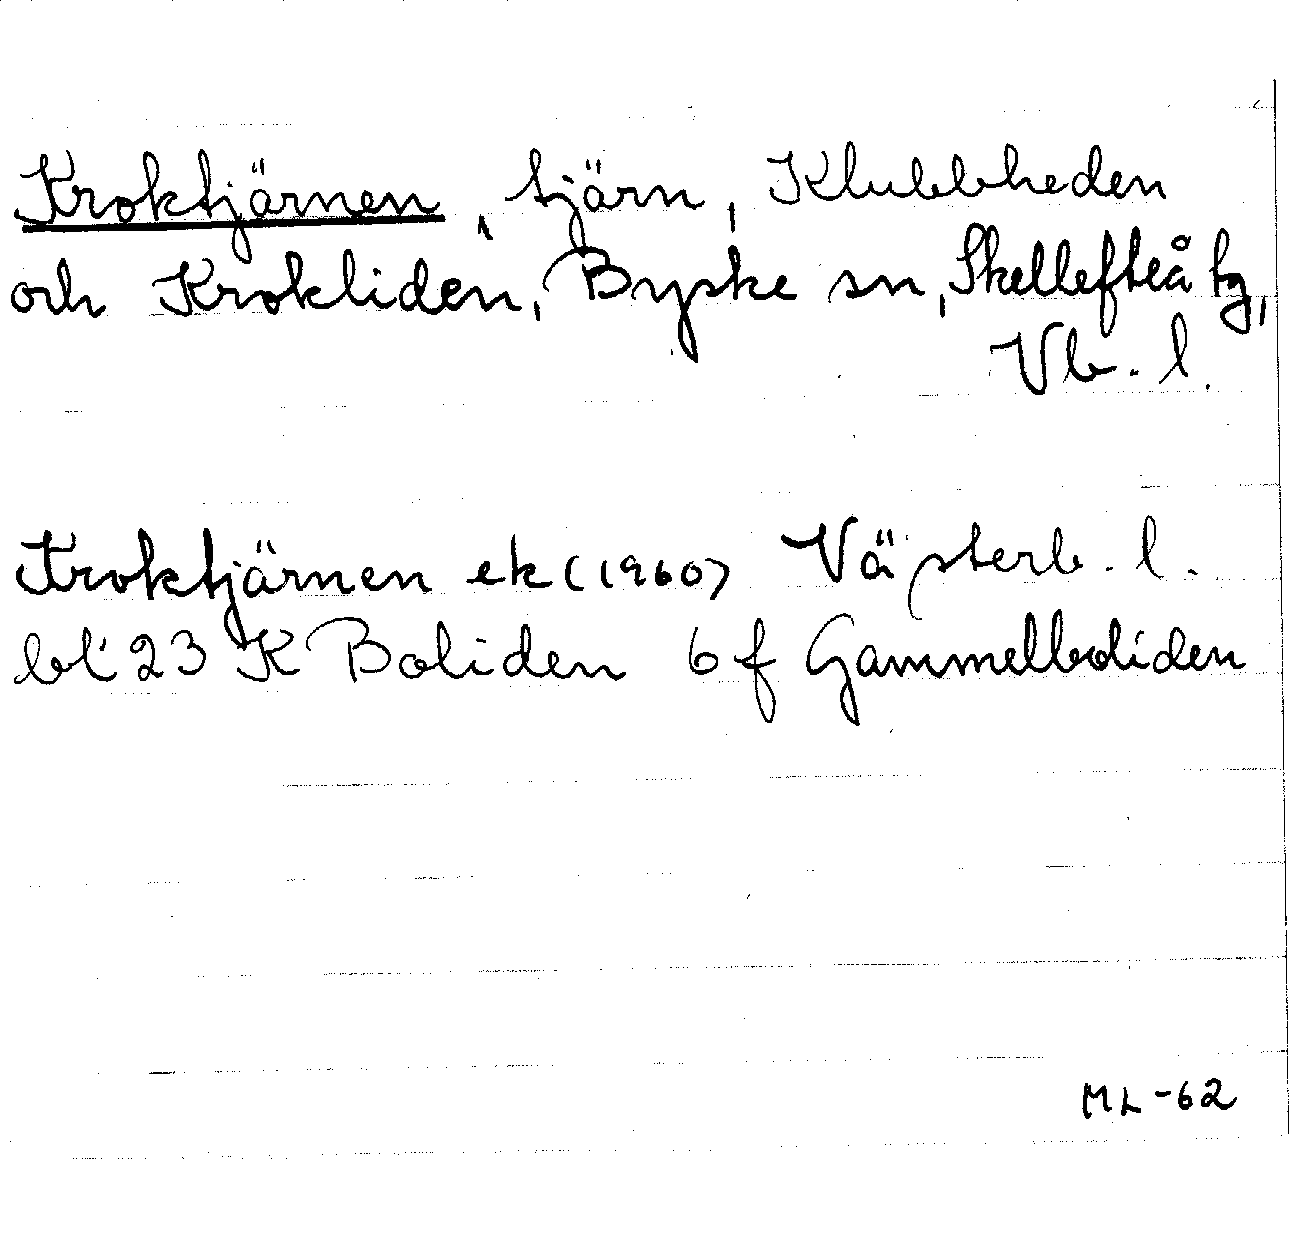 Kroktjärnen, tjärn, Klubbheden
och Krokliden, Byske sn, Skellefteå tg,
Vb. l.
Kroktjärnen ek (1960) Västerb. l.
bl 23 K Boliden 6 f Gammelboliden
ML -62